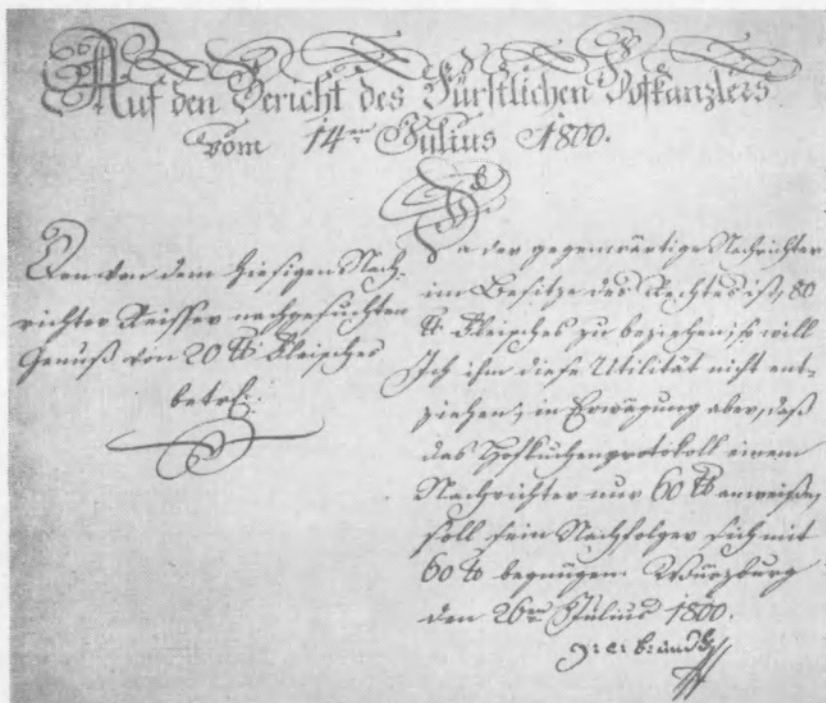 Auf den Bericht des Fürstlichen Hofkanzlers
vom 14ten Julius 1800.
Den von dem hiesigen Nach-
richter Reisser nachgesuchten
Genuß von 20 ℔ Fleisches
betrf.
Da der gegenwärtige Nachrichter
im Besitze des Rechtes ist, 80
℔ Fleisches zu beziehen; so will
Ich ihm diese Utilität nicht ent-
ziehen; in Erwägung aber, daß
das Hofkuchenprotokoll einem
Nachrichter nur 60 ℔ anweiße,
soll sein Nachfolger sich mit
60 ℔ begnügen. Würzburg
den 26ten Julius 1800.